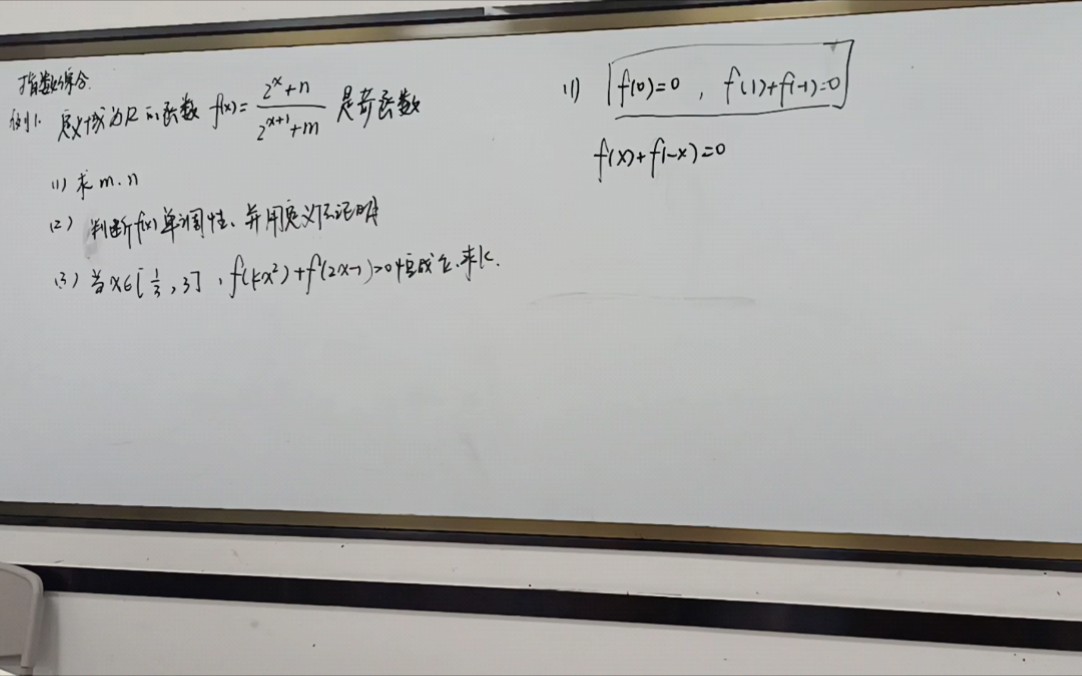 指数综合
例1. 定义域为R的函数 f(x)= (2^x+n)/(2^(x+1)+m) 是奇函数
(1) 求 m.n
(2) 判断f(x)单调性、并用定义法证明
(3) 当x∈[1/3, 3], f(kx²)+f(2x-1)>0恒成立.求k.
(1) f(0)=0, f(1)+f(-1)=0
f(x)+f(-x)=0